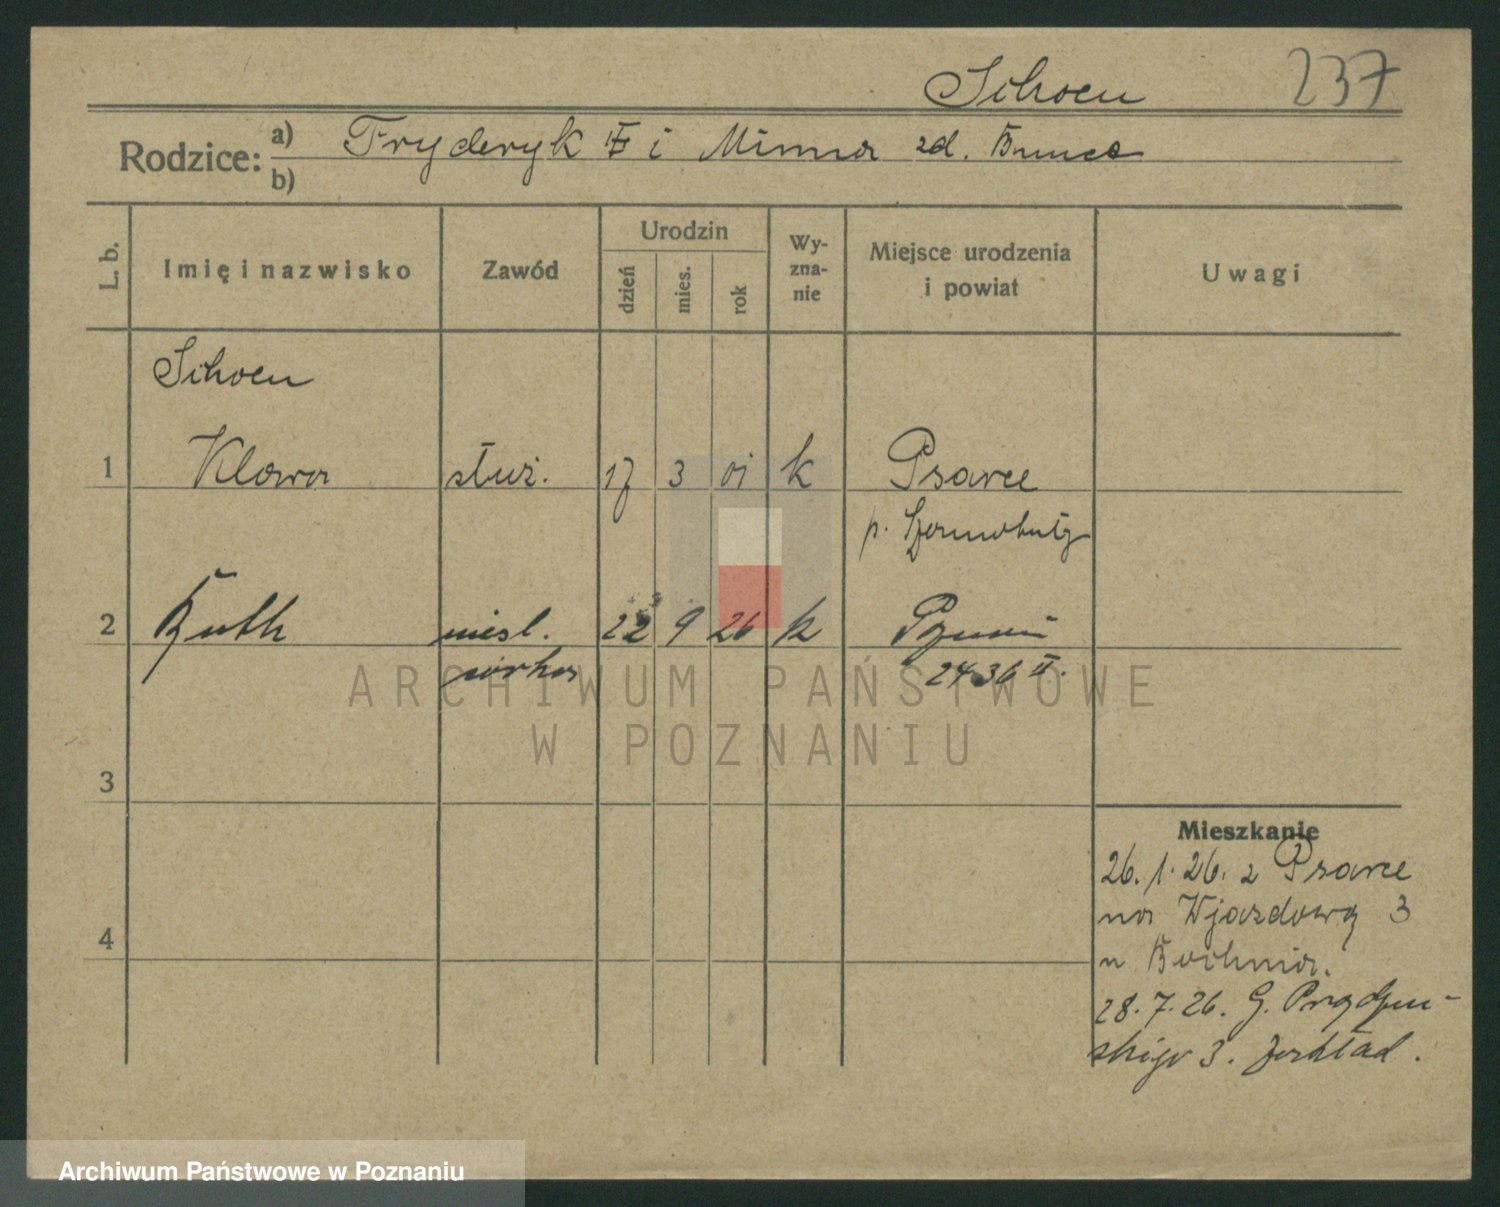 Schoen 237
Rodzice:
a) Fryderyk i Minna zd.
b)
L. b.
Imię i nazwisko
Zawód
Urodzin
dzień
mies.
rok
Wy-
zna-
nie
Miejsce urodzenia
i powiat
Uwagi
Schoen
1 Klara służ. 17 3 01 k Psarce
p.
2 Ruth nieśl. 22 9 26 k Poznań
córka 2436 II.
3
4
Mieszkanie
26. 1. 26. z Psarce
na Wjazdową 3
u
28. 7. 26. G.
3. Zakład.
ARCHIWUM PAŃSTWOWE
W POZNANIU
Archiwum Państwowe w Poznaniu